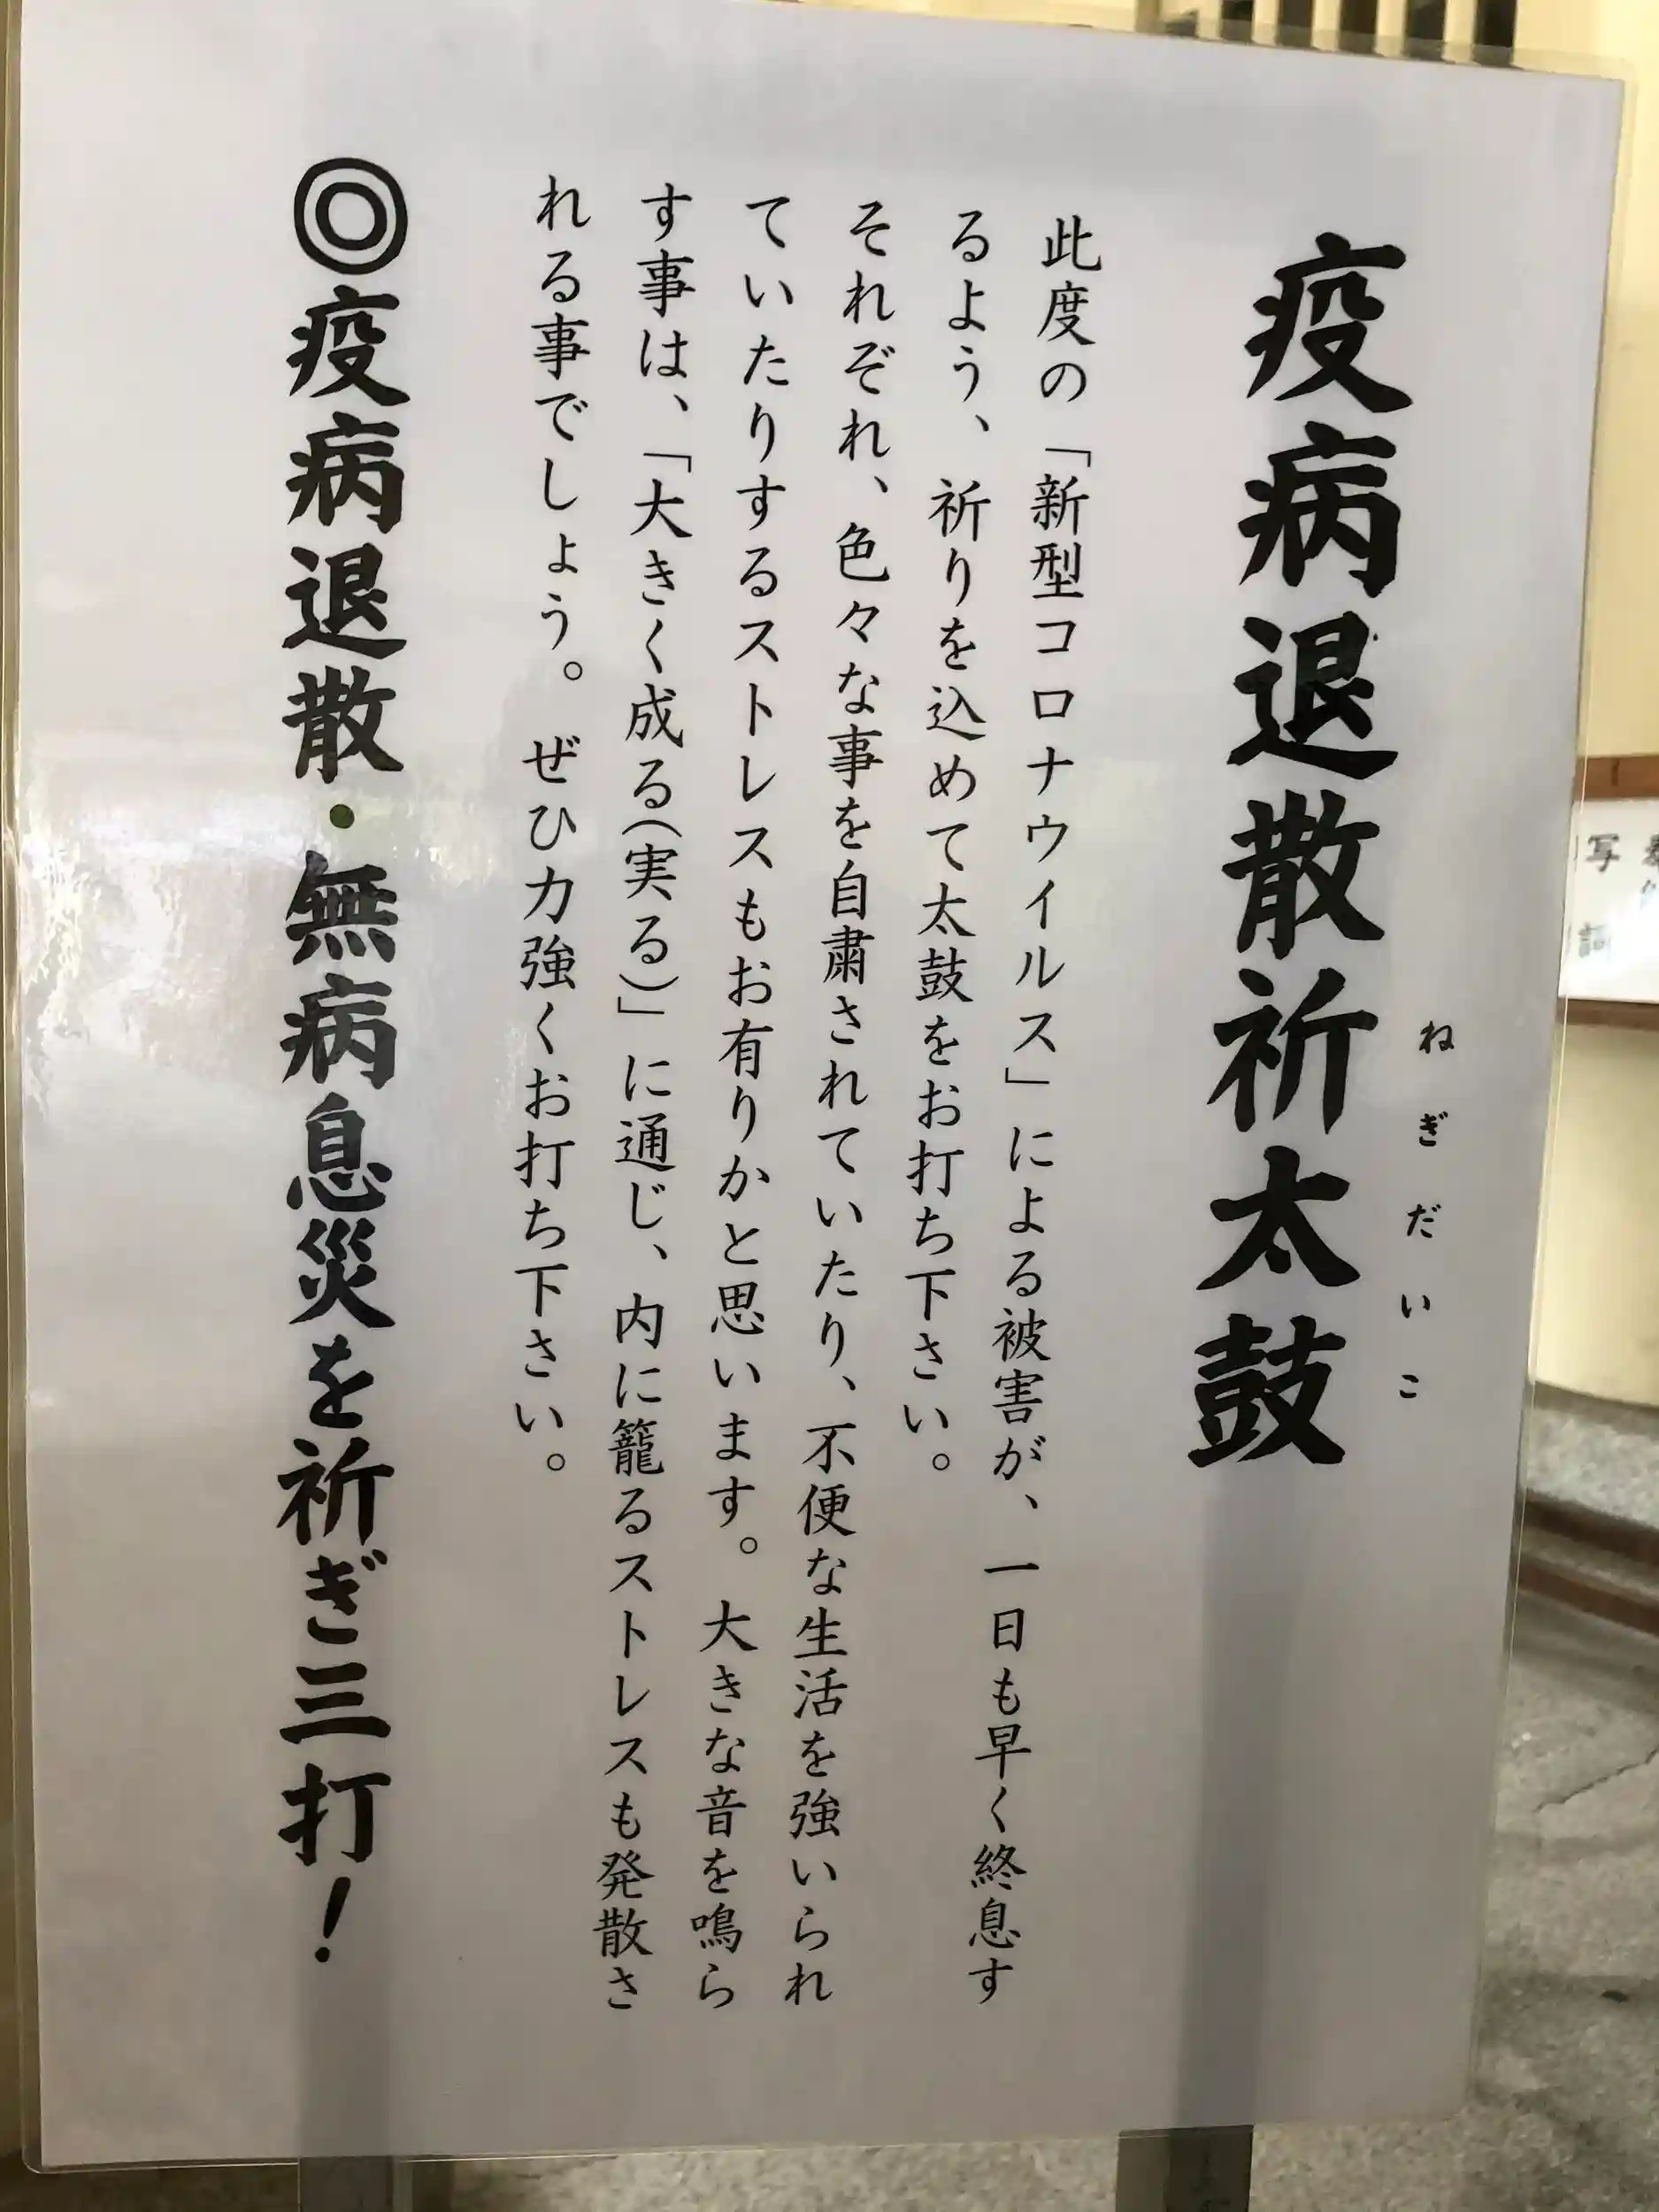 疫病退散祈太鼓
ねぎだいこ
此度の「新型コロナウイルス」による被害が、一日も早く終息す
るよう、祈りを込めて太鼓をお打ち下さい。
それぞれ、色々な事を自粛されていたり、不便な生活を強いられ
ていたりするストレスもお有りかと思います。大きな音を鳴ら
す事は、「大きく成る(実る)」に通じ、内に籠るストレスも発散さ
れる事でしょう。ぜひ力強くお打ち下さい。
◎疫病退散・無病息災を祈ぎ三打!
写
詞